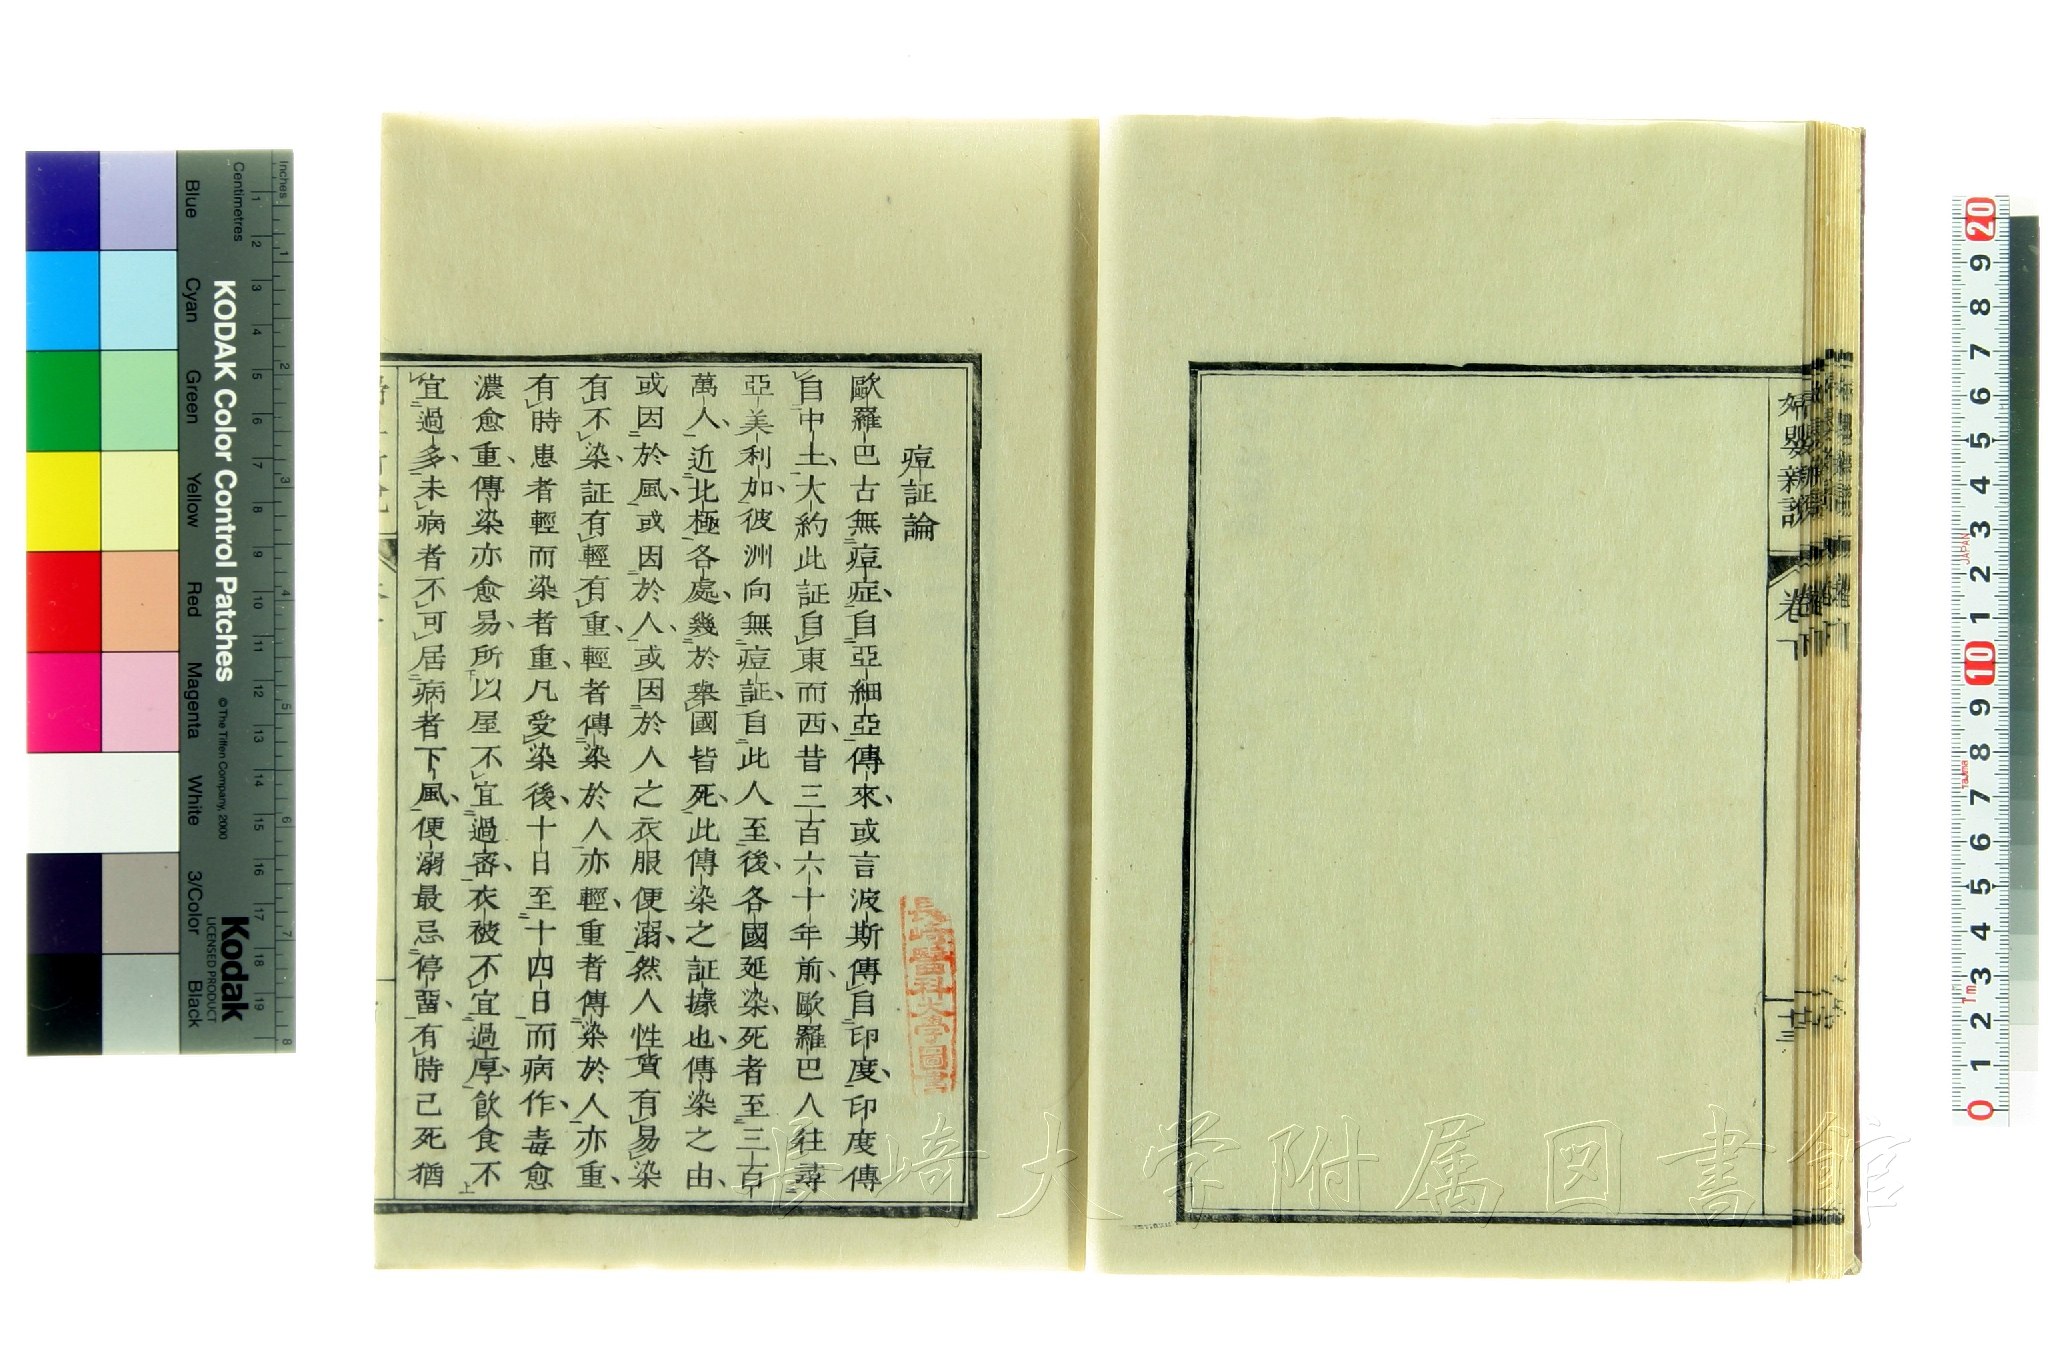 婦嬰新說
卷下
痘証論
歐羅巴古無痘症、自亞細亞傳來、或言波斯傳自印度、印度傳
自中土、大約此証自東而西、昔三百六十年前、歐羅巴人往尋
亞美利加、彼洲向無痘証、自此人至後、各國延染、死者至三百
萬人、近北極各處、幾於舉國皆死、此傳染之証據也、傳染之由、
或因於風、或因於人、或因於人之衣服便溺、然人性質有易染
有不染、証有輕有重、輕者傳染於人亦輕、重者傳染於人亦重、
有時患者輕而染者重、凡受染後、十日至十四日而病作、毒愈
濃愈重、傳染亦愈易、所以屋不宜過密、衣被不宜過厚、飲食不
宜過多、未病者不可居病者下風、便溺最忌停畱、有時已死猶
長崎醫科大學圖書
長崎大学附属図書館
KODAK Color Control Patches
© The Tiffen Company, 2000
Kodak
LICENSED PRODUCT
Inches
Centimetres
1 2 3 4 5 6 7 8
1 2 3 4 5 6 7 8 9 10 11 12 13 14 15 16 17 18 19
Blue
Cyan
Green
Yellow
Red
Magenta
White
3/Color
Black
20 9 8 7 6 5 4 3 2 1 10 9 8 7 6 5 4 3 2 1 0
JAPAN
Tajima